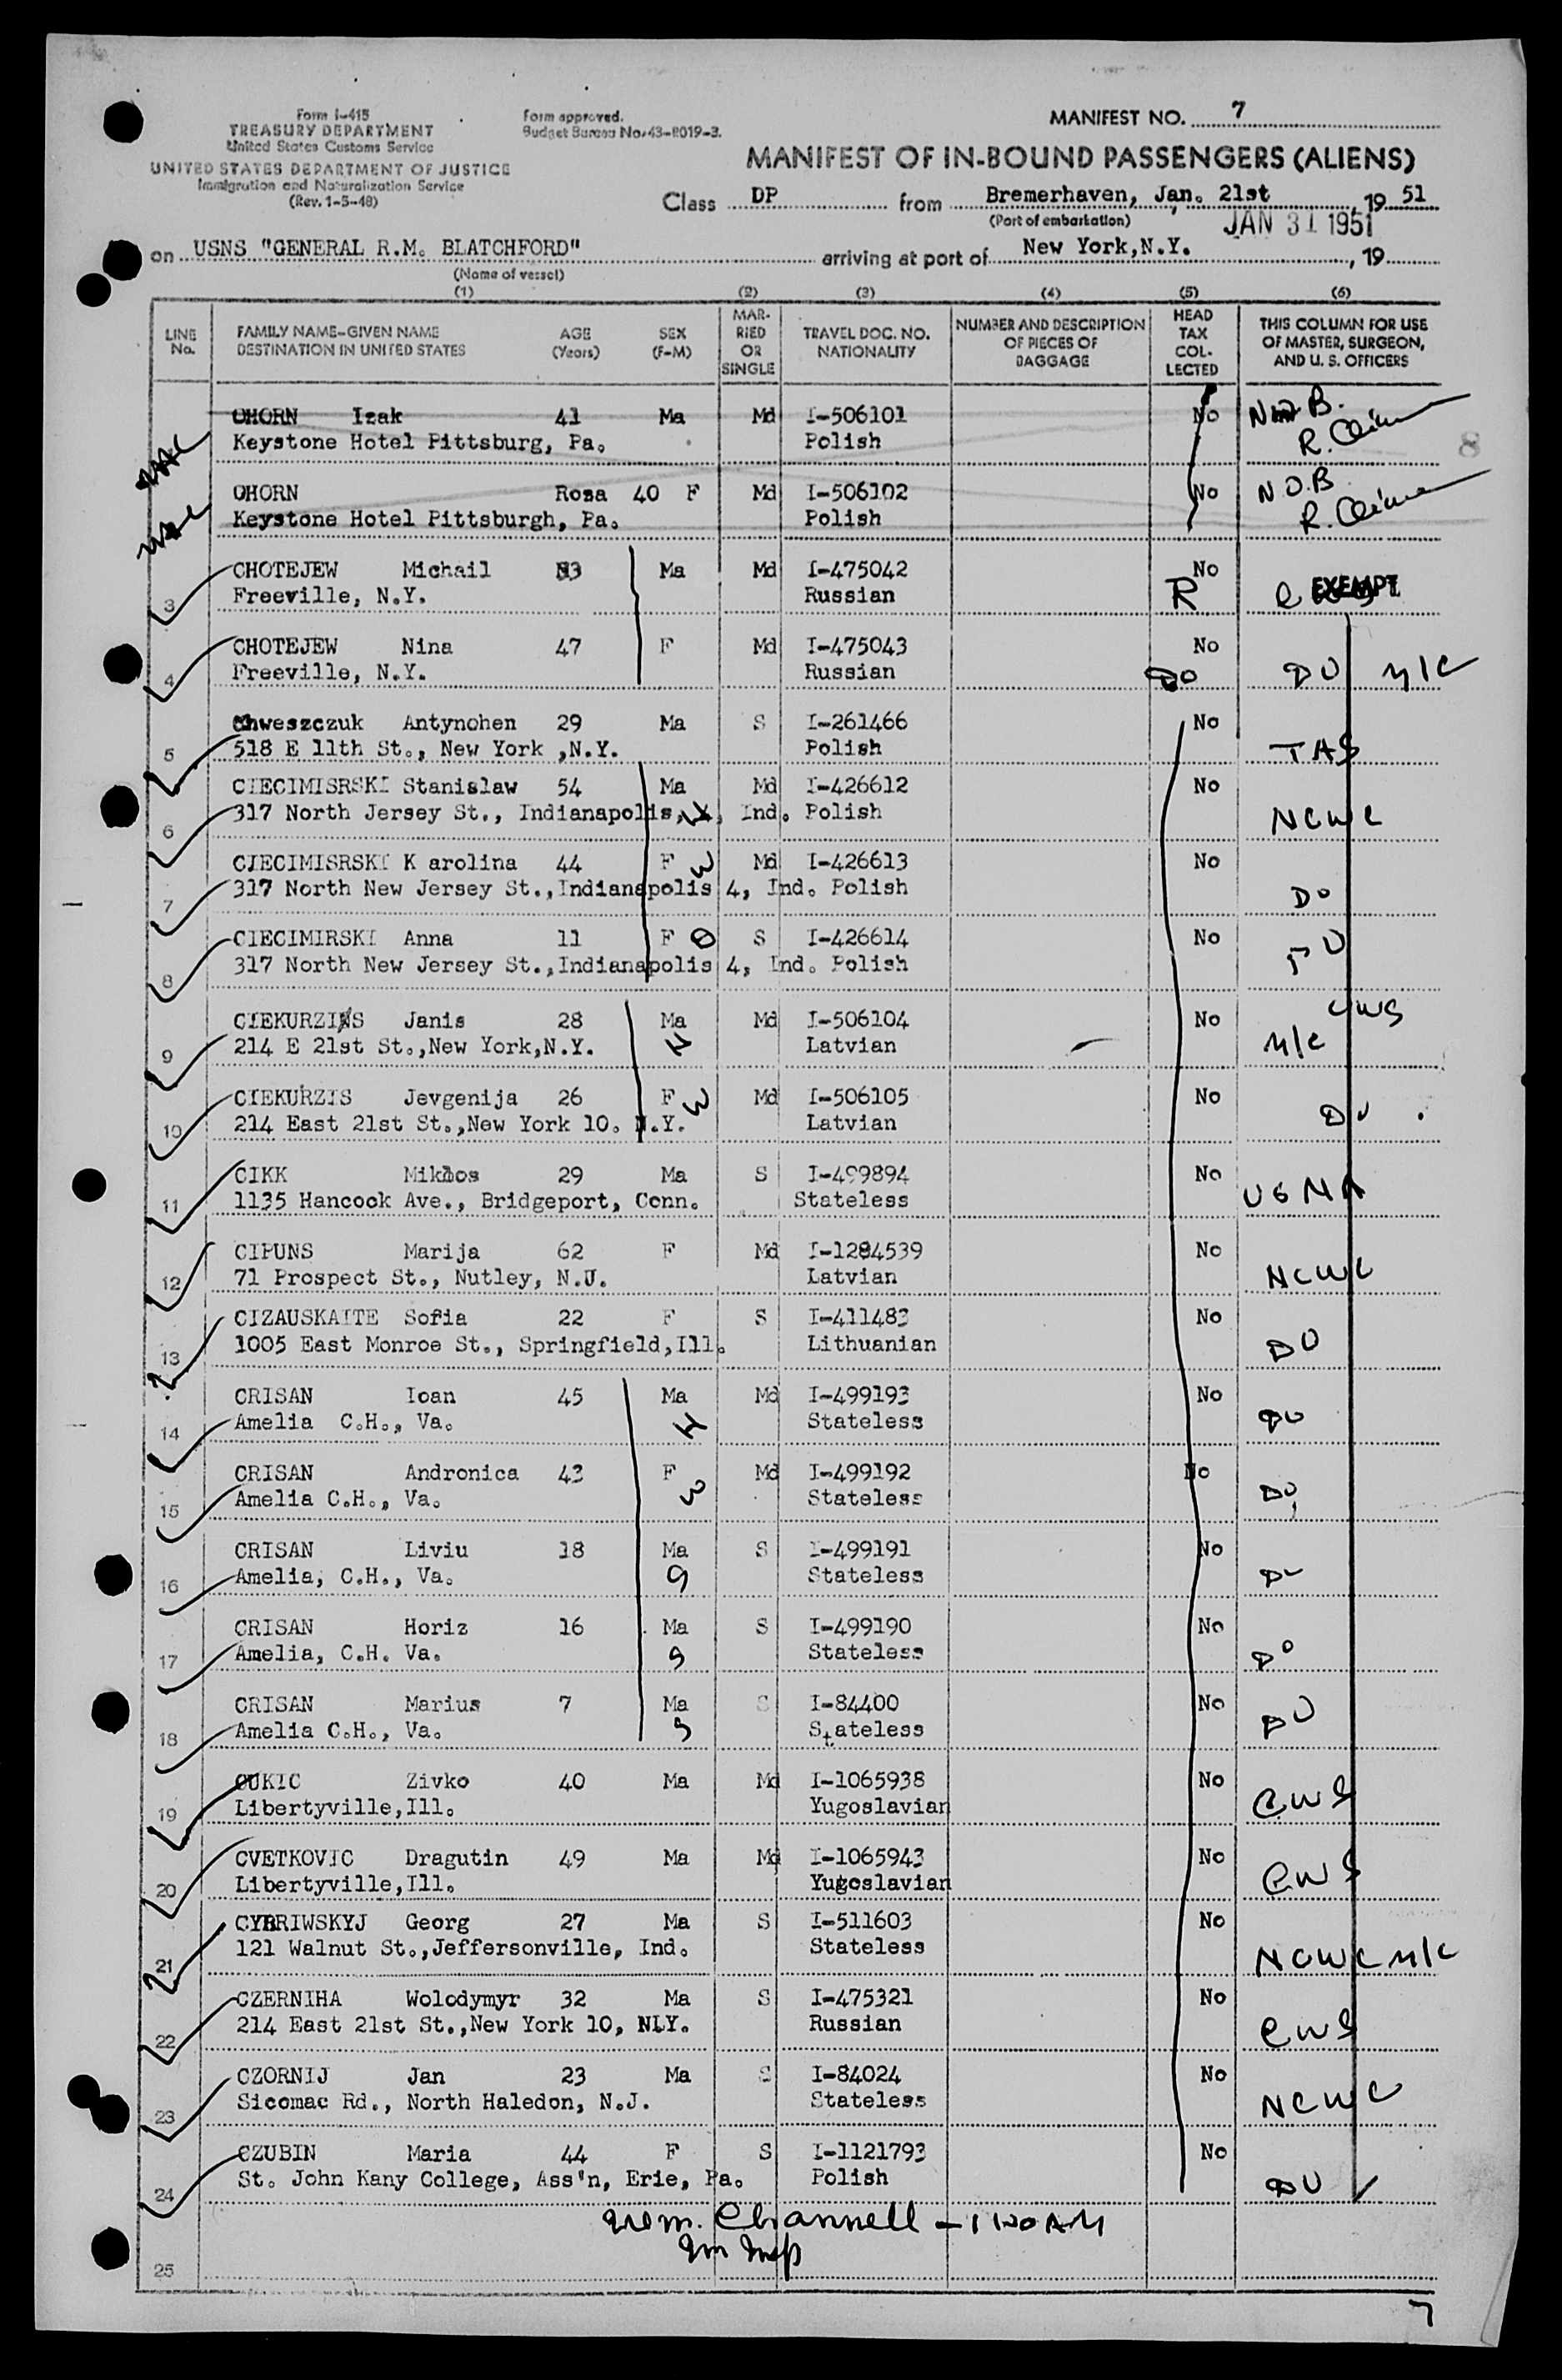 Form I-415
TREASURY DEPARTMENT
United States Customs Service
UNITED STATES DEPARTMENT OF JUSTICE
Immigration and Naturalization Service
(Rev. 1-5-48)
Form approved.
Budget Bureau No. 43-R019-3.
MANIFEST NO. 7
MANIFEST OF IN-BOUND PASSENGERS (ALIENS)
Class DP from Bremerhaven, Jan. 21st, 19 51
(Port of embarkation)
JAN 31 1951
on USNS "GENERAL R.M. BLATCHFORD" arriving at port of New York,N.Y. , 19
(Name of vessel)
(1) (2) (3) (4) (5) (6)
LINE No. FAMILY NAME-GIVEN NAME DESTINATION IN UNITED STATES AGE (Years) SEX (F-M) MARRIED OR SINGLE TRAVEL DOC. NO. NATIONALITY NUMBER AND DESCRIPTION OF PIECES OF BAGGAGE HEAD TAX COLLECTED THIS COLUMN FOR USE OF MASTER, SURGEON, AND U. S. OFFICERS
CHORN Izak 41 Ma Md I-506101 No N.O.B.
Keystone Hotel Pittsburg, Pa. Polish 8
CHORN Rosa 40 F Md I-506102 No N.O.B.
Keystone Hotel Pittsburgh, Pa. Polish
CHOTEJEW Michail 53 Ma Md I-475042 No
3 Freeville, N.Y. Russian R EXEMPT
CHOTEJEW Nina 47 F Md I-475043 No
4 Freeville, N.Y. Russian DO DO M/C
Chweszczuk Antynohen 29 Ma S I-261466 No
5 518 E 11th St., New York ,N.Y. Polish TAS
CIECIMISRSKI Stanislaw 54 Ma Md I-426612 No
6 317 North Jersey St., Indianapolis, Ind. Polish NCWC
CIECIMISRSKI K arolina 44 F W Md I-426613 No
7 317 North New Jersey St.,Indianapolis 4, Ind. Polish DO
CIECIMIRSKI Anna 11 F D S I-426614 No
8 317 North New Jersey St.,Indianapolis 4, Ind. Polish DO
CIEKURZINS Janis 28 Ma Md I-506104 No CWS
9 214 E 21st St.,New York,N.Y. H Latvian M/C
CIEKURZIS Jevgenija 26 F W Md I-506105 No
10 214 East 21st St.,New York 10. N.Y. Latvian DO
CIKK Miklos 29 Ma S I-499894 No
11 1135 Hancock Ave., Bridgeport, Conn. Stateless
CIPUNS Marija 62 F Md I-1284539 No
12 71 Prospect St., Nutley, N.J. Latvian NCWC
CIZAUSKAITE Sofia 22 F S I-411483 No
13 1005 East Monroe St., Springfield,Ill. Lithuanian DO
CRISAN Ioan 45 Ma Md I-499193 No
14 Amelia C.H., Va. H Stateless DO
CRISAN Andronica 43 F Md I-499192 No
15 Amelia C.H., Va. W Stateless DO
CRISAN Liviu 18 Ma S I-499191 No
16 Amelia, C.H., Va. S Stateless DO
CRISAN Horiz 16 Ma S I-499190 No
17 Amelia, C.H. Va. S Stateless DO
CRISAN Marius 7 Ma S I-84400 No
18 Amelia C.H., Va. S Stateless DO
CUKIC Zivko 40 Ma Md I-1065938 No
19 Libertyville,Ill. Yugoslavian CWS
CVETKOVIC Dragutin 49 Ma Md I-1065943 No
20 Libertyville,Ill. Yugoslavian CWS
CYBRIWSKYJ Georg 27 Ma S I-511603 No
21 121 Walnut St.,Jeffersonville, Ind. Stateless NCWC M/C
CZERNIHA Wolodymyr 32 Ma S I-475321 No
22 214 East 21st St.,New York 10, NLY. Russian CWS
CZORNIJ Jan 23 Ma S I-84024 No
23 Sicomac Rd., North Haledon, N.J. Stateless NCWC
CZUBIN Maria 44 F S I-1121793 No
24 St. John Kany College, Ass'n, Erie, Pa. Polish DO
Wm. Channell
25
7